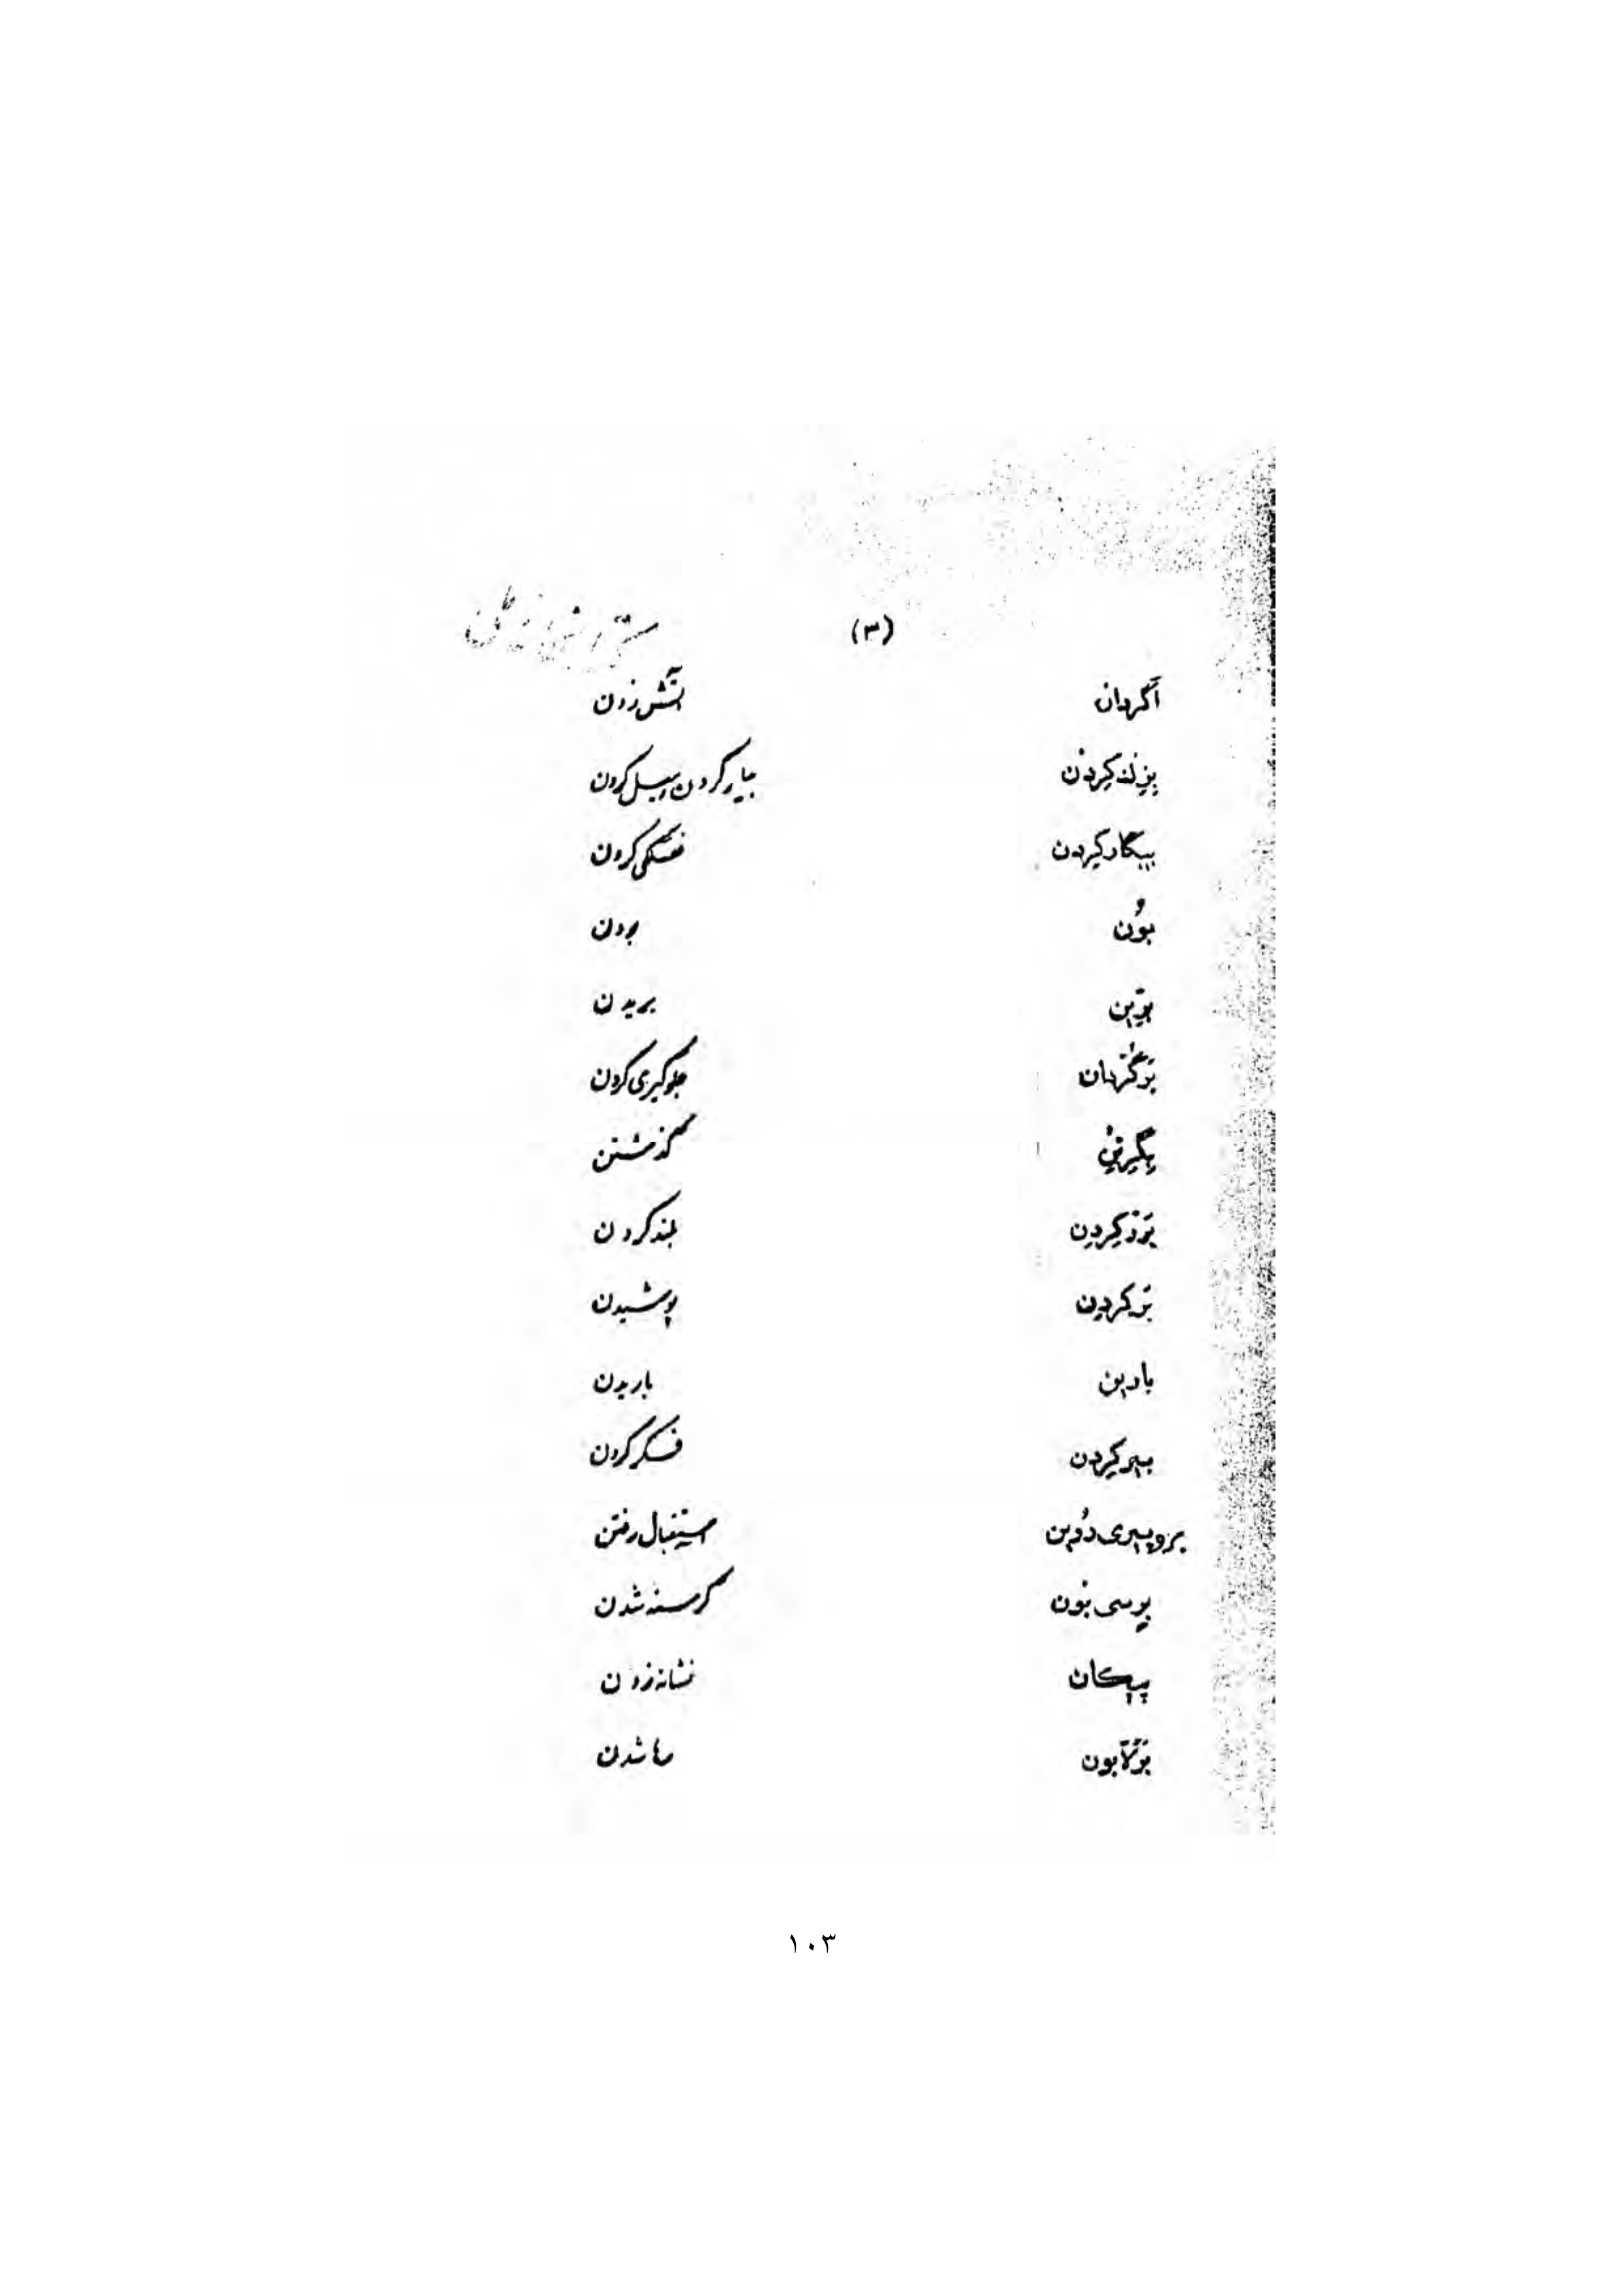 (۳)
آگردان آتش زدن
بزِند کِردن بیدار کردن، سبیل کردن
بیگار کِردن خستگی کردن
بوُن بودن
بوّین بریدن
بَرگَردان جلوگیری کردن
بِگیرتِن گذشتن
بَرز کِردن بلند کردن
بَر کردِن پوشیدن
بارین باریدن
بیر کِردن فکر کردن
برو پیری دُوین استقبال رفتن
بِرسی بُون گرسنه شدن
پیکان نشانه زدن
بَرَلّا بون رها شدن
۱۰۳